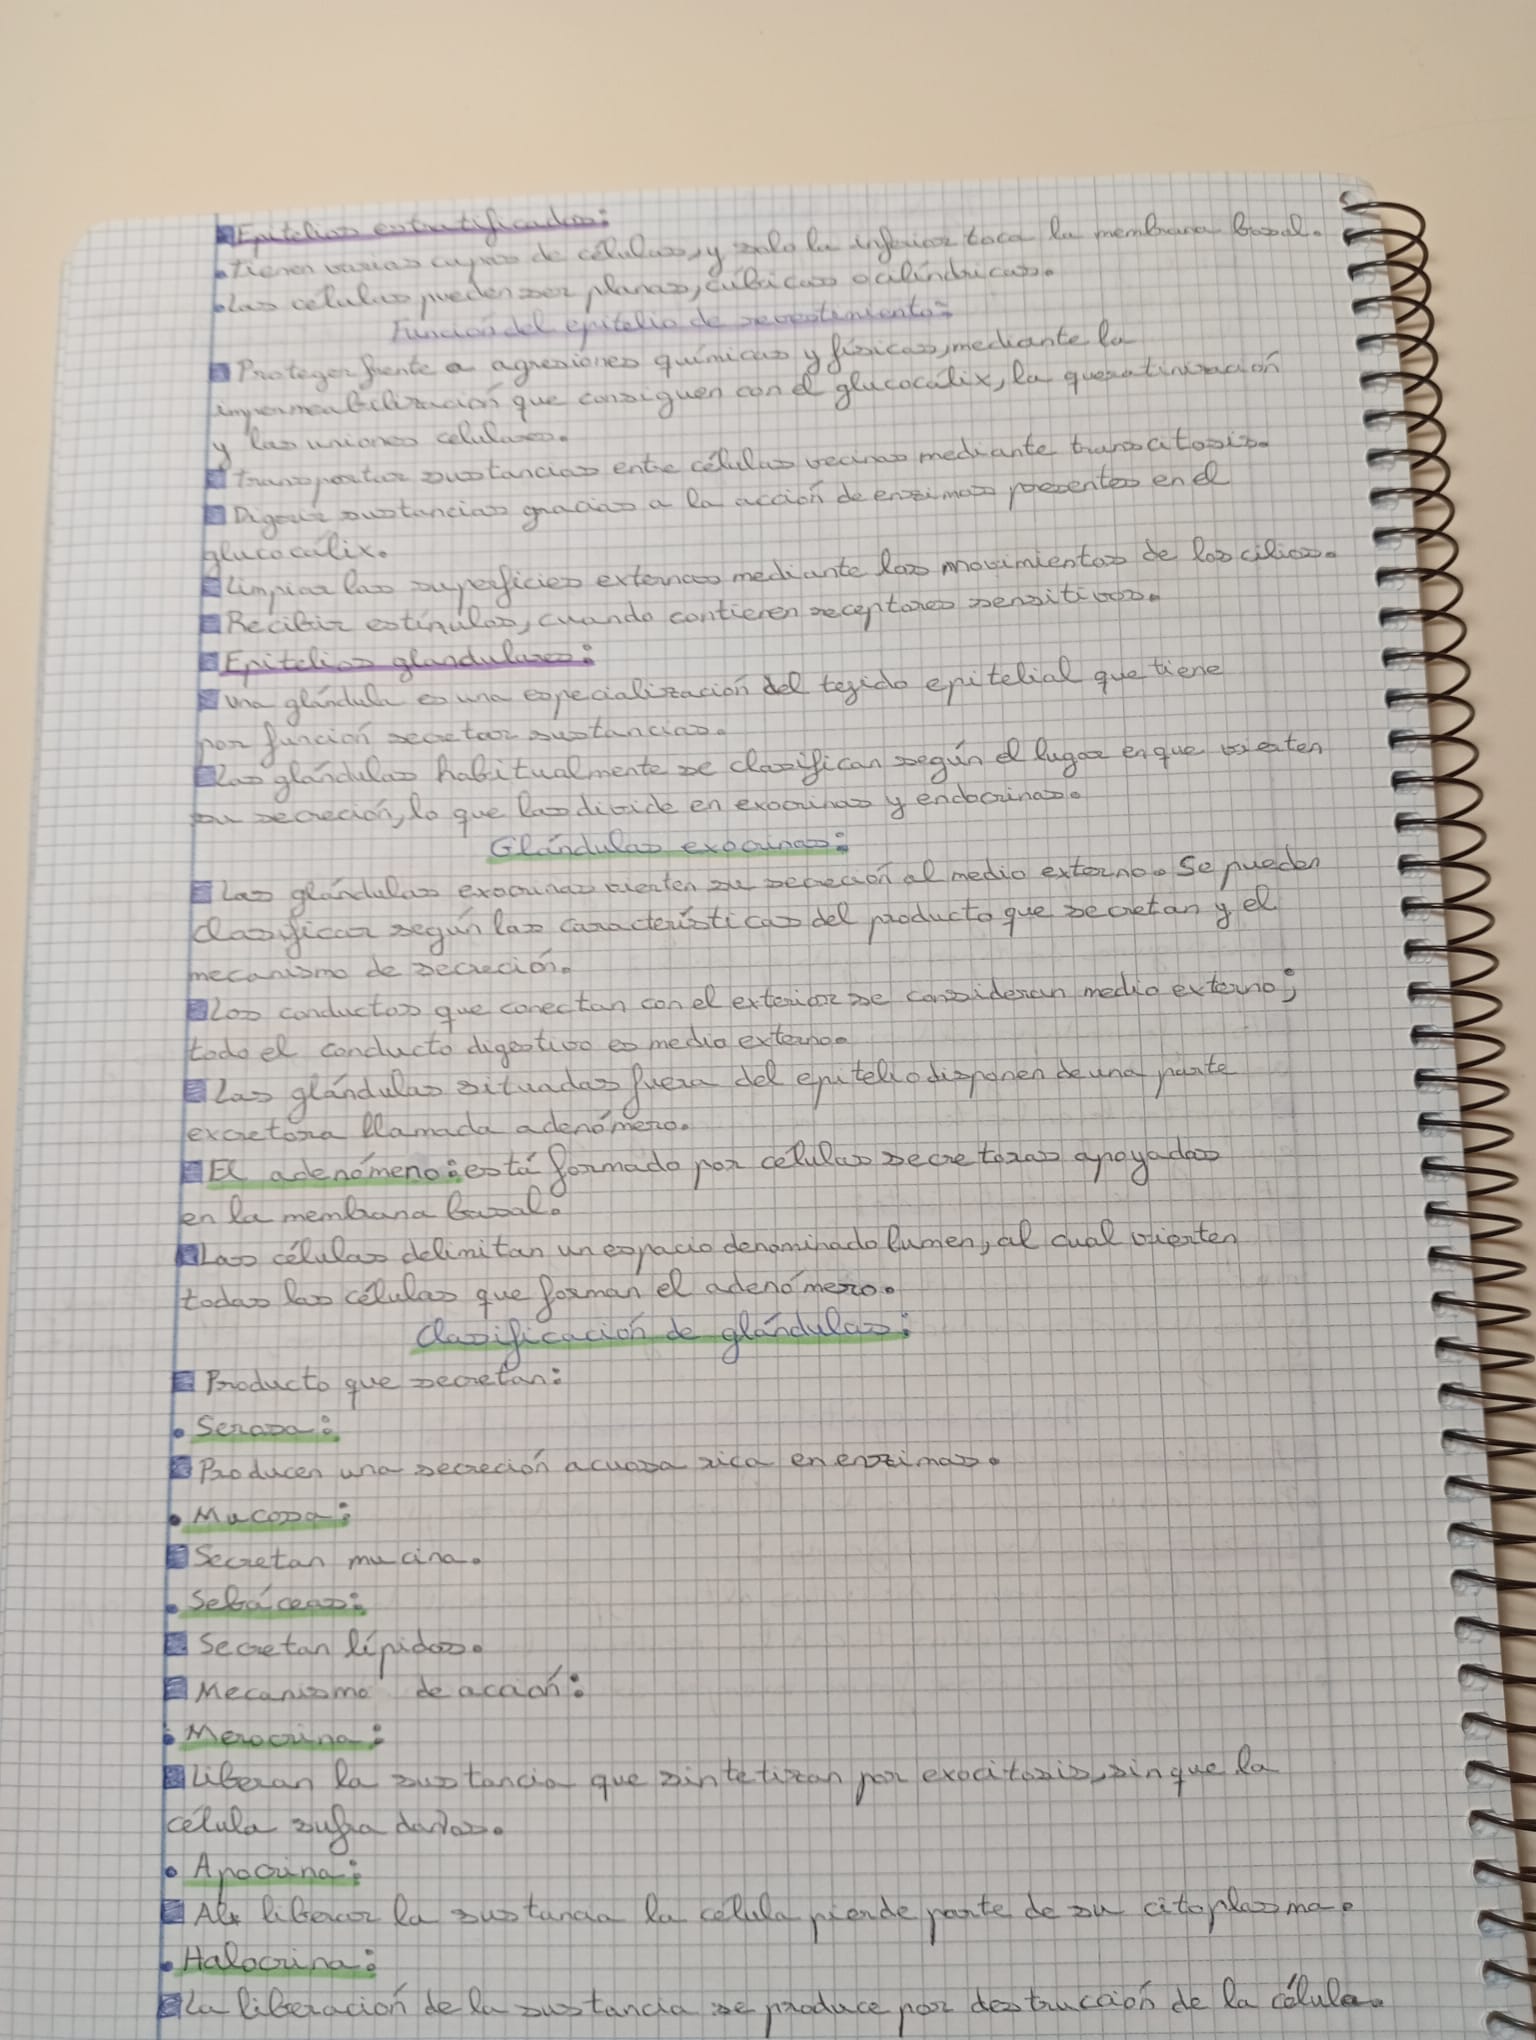 Epitelios estratificados:
• Tienen varias capas de células, y solo la inferior toca la membrana basal.
• Las celulas pueden ser planas, cúbicas o cilíndricas.
Función del epitelio de revestimiento:
Proteger frente a agresiones químicas y físicas, mediante la
impermeabilización que consiguen con el glucocálix, la queratinización
y las uniones celulares.
Transportar sustancias entre células vecinas mediante transcitosis.
Digerir sustancias gracias a la acción de enzimas presentes en el
glucocálix.
Limpiar las superficies externas mediante los movimientos de los cilios.
Recibir estínulos, cuando contienen receptores sensitivos.
Epitelios glandulares:
Una glándula es una especialización del tejido epitelial que tiene
por función secretar sustancias.
Las glándulas habitualmente se clasifican según el lugar en que vierten
su secreción, lo que las divide en exocrinas y endocrinas.
Glándulas exocrinas:
Las glándulas exocrinas vierten su secreción al medio externo. Se pueden
clasificar según las características del producto que secretan y el
mecanismo de secreción.
Los conductos que conectan con el exterior se consideran medio externo;
todo el conducto digestivo es medio externo.
Las glándulas situadas fuera del epitelio disponen de una parte
excretora llamada adenómero.
El adenómeno: está formado por células secretoras apoyadas
en la membrana basal.
Las células delimitan un espacio denominado lumen, al cual vierten
todas las células que forman el adenómero.
Clasificación de glándulas:
Producto que secretan:
• Serosa:
Producen una secreción acuosa rica en enzimas.
• Mucosa:
Secretan mucina.
• Sebáceas:
Secretan lípidos.
Mecanismo de acción:
• Merocrina:
Liberan la sustancia que sintetizan por exocitosis, sin que la
célula sufra daños.
• Apocrina:
Al liberar la sustancia la célula pierde parte de su citoplasma.
• Halocrina:
La liberación de la sustancia se produce por destrucción de la célula.